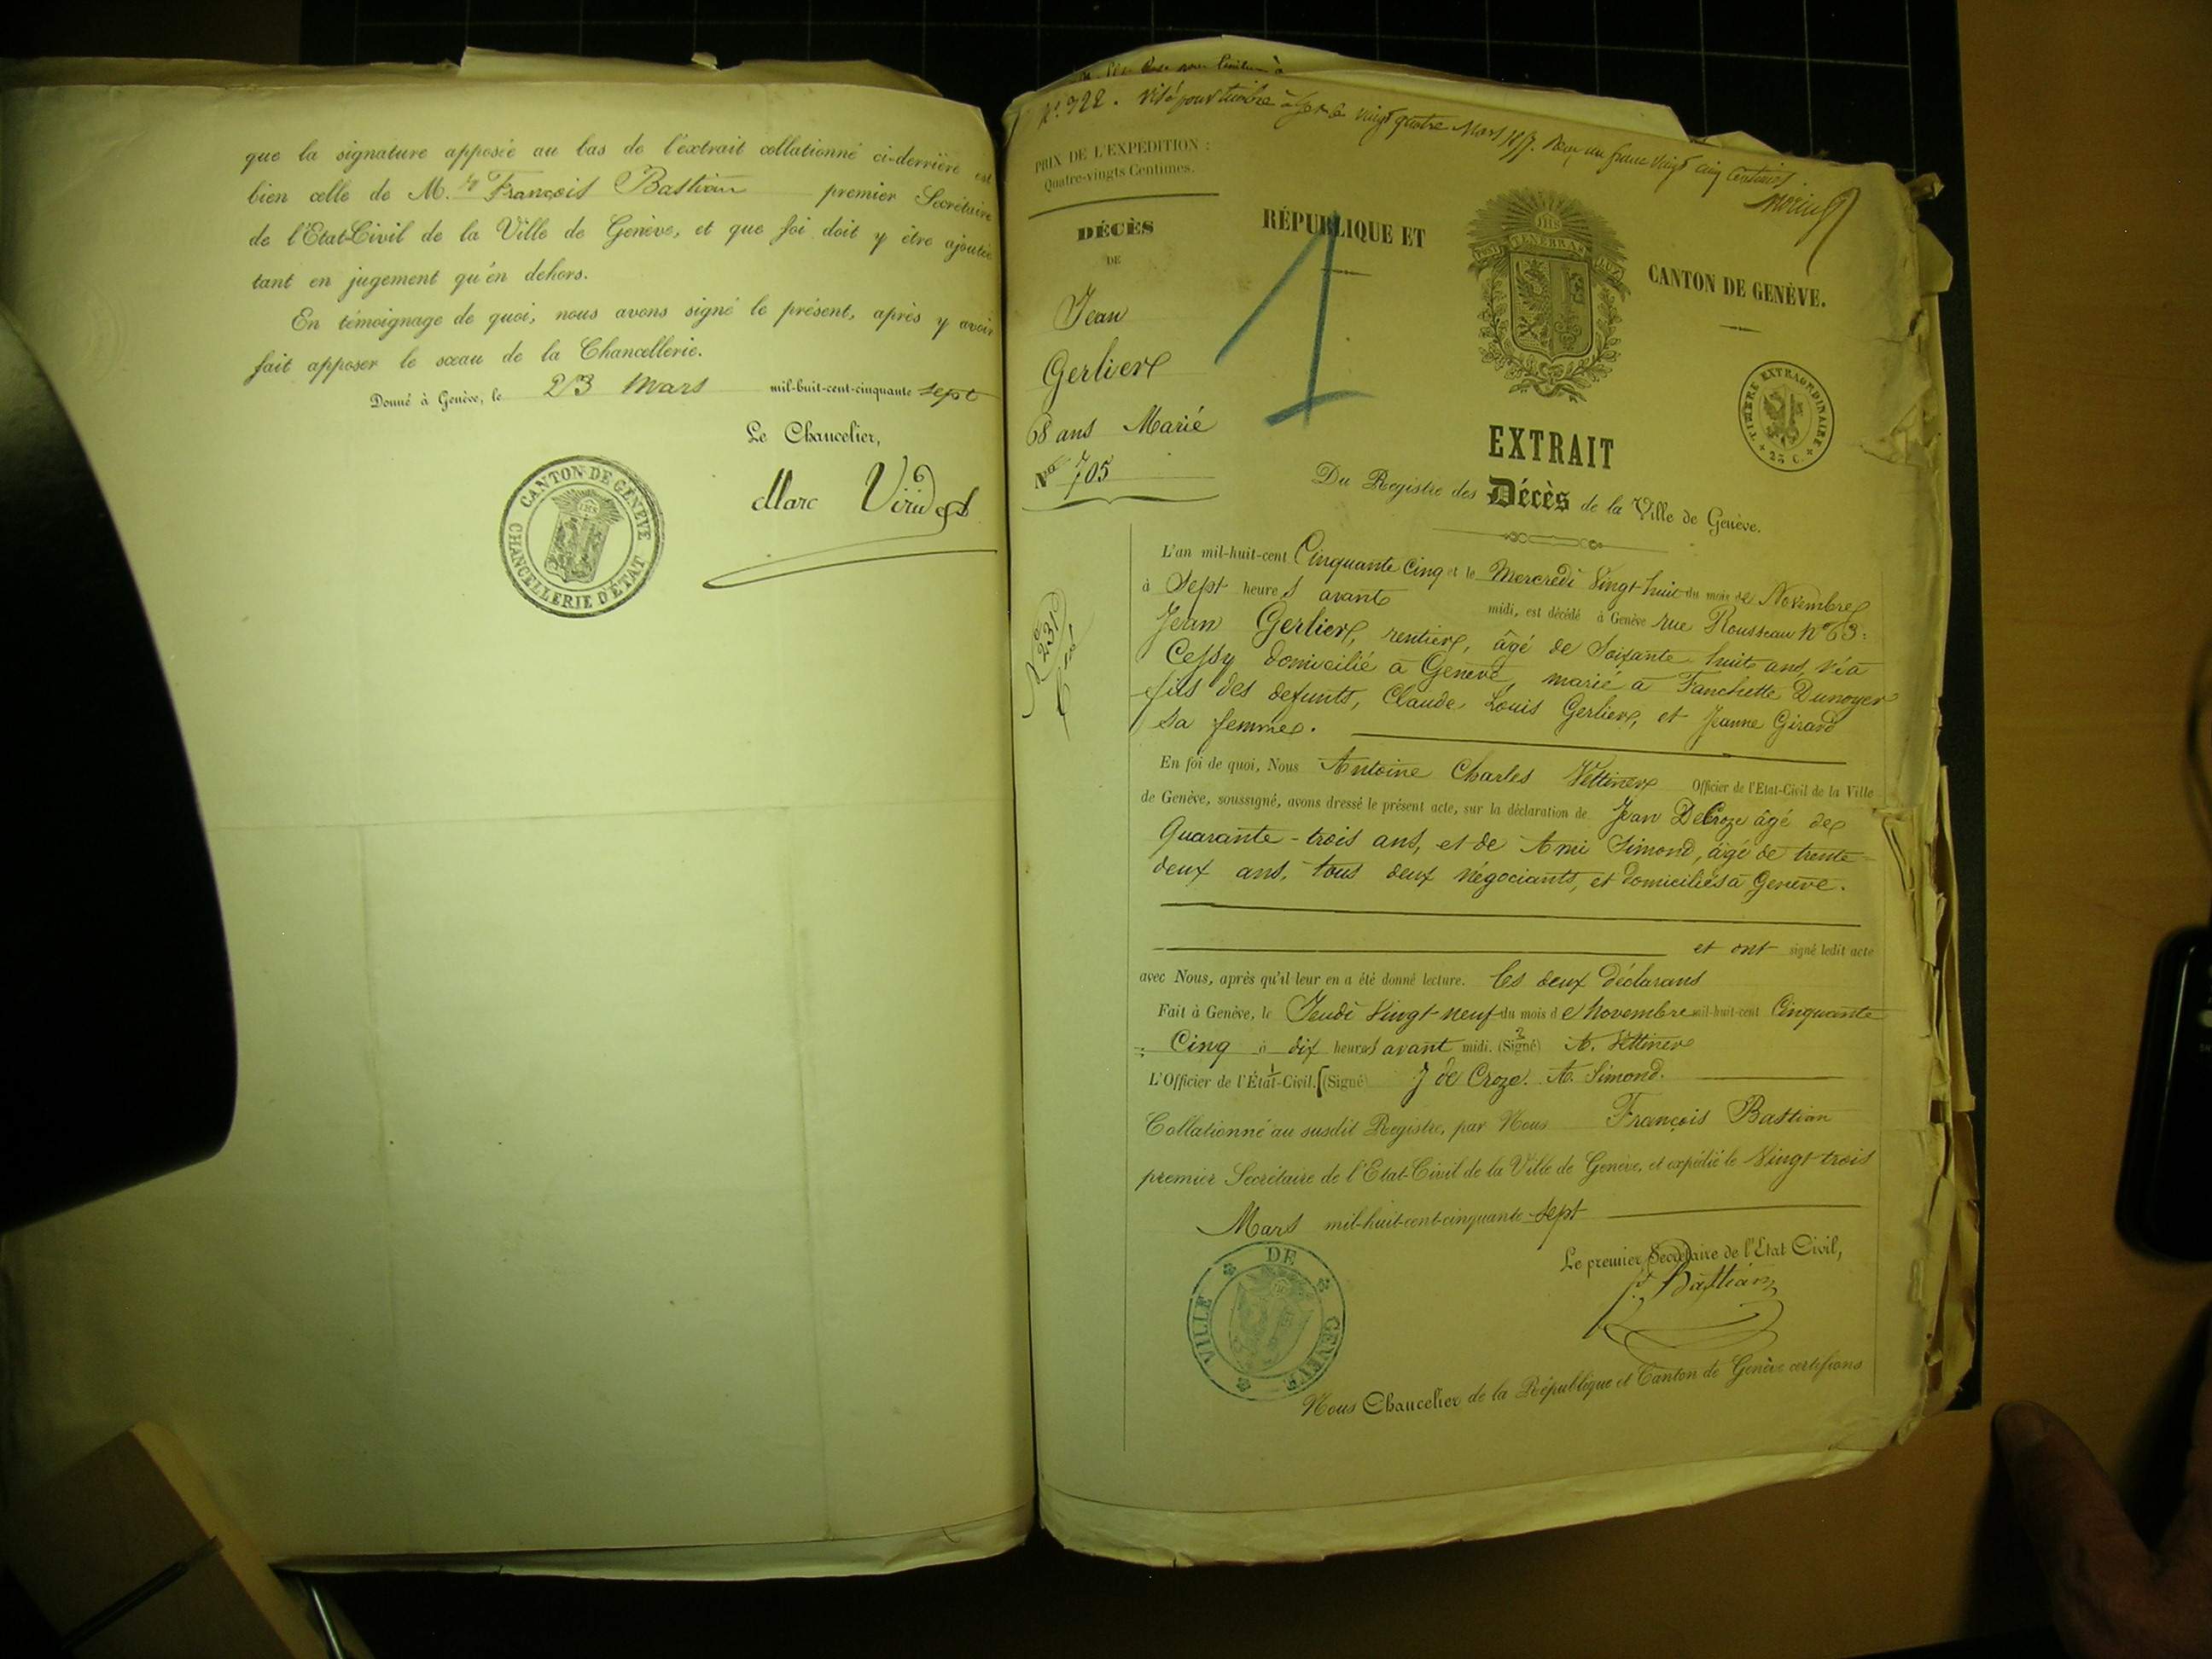 que la signature apposée au bas de l'extrait collationné ci-derrière est
bien celle de M. François Bastian premier Secrétaire
de l'Etat-Civil de la Ville de Genève, et que foi doit y être ajoutée
tant en jugement qu'en dehors.
En témoignage de quoi, nous avons signé le présent, après y avoir
fait apposer le sceau de la Chancellerie.
Donné à Genève, le 23 Mars mil-huit-cent-cinquante sept
Le Chancelier,
Marc Viridet
CANTON DE GENÈVE
CHANCELLERIE D'ÉTAT
No 722. Visé pour timbre à Gex le vingt quatre Mars 1857. Reçu un franc vingt cinq centimes.
PRIX DE L'EXPÉDITION :
Quatre-vingts Centimes.
DÉCÈS
DE
Jean
Gerlier
68 ans Marié
No 705
1
RÉPUBLIQUE ET
CANTON DE GENÈVE.
POST TENEBRAS LUX
IHS
TIMBRE EXTRAORDINAIRE
25 C.
EXTRAIT
Du Registre des Décès de la Ville de Genève.
No 231
L'an mil-huit-cent Cinquante Cinq et le Mercredi Vingt-huit du mois de Novembre
à Sept heures avant midi, est décédé à Genève rue Rousseau No 63:
Jean Gerlier, rentier, âgé de Soixante huit ans, né à
Cessy domicilié à Genève, marié à Fanchette Dunoyer
fils des defunts, Claude Louis Gerlier, et Jeanne Girard
sa femme.
En foi de quoi, Nous Antoine Charles Vettiner Officier de l'Etat-Civil de la Ville
de Genève, soussigné, avons dressé le présent acte, sur la déclaration de Jean DeCroze âgé de
Quarante-trois ans, et de Ami Simond, âgé de trente-
deux ans, tous deux négociants, et domiciliés à Genève.
et ont signé ledit acte
avec Nous, après qu'il leur en a été donné lecture. les deux déclarans
Fait à Genève, le Jeudi Vingt-neuf du mois de Novembre mil-huit-cent Cinquante
Cinq à dix heures avant midi. (Signé) 2 A. Vettiner
L'Officier de l'État-Civil. 1 (Signé) J de Croze. A. Simond.
Collationné au susdit Registre, par Nous François Bastian
premier Secrétaire de l'Etat-Civil de la Ville de Genève, et expédié le Vingt-trois
Mars mil-huit-cent-cinquante-sept
Le premier Secrétaire de l'Etat Civil,
f. Bastian
VILLE DE GENEVE
Nous Chancelier de la République et Canton de Genève certifions